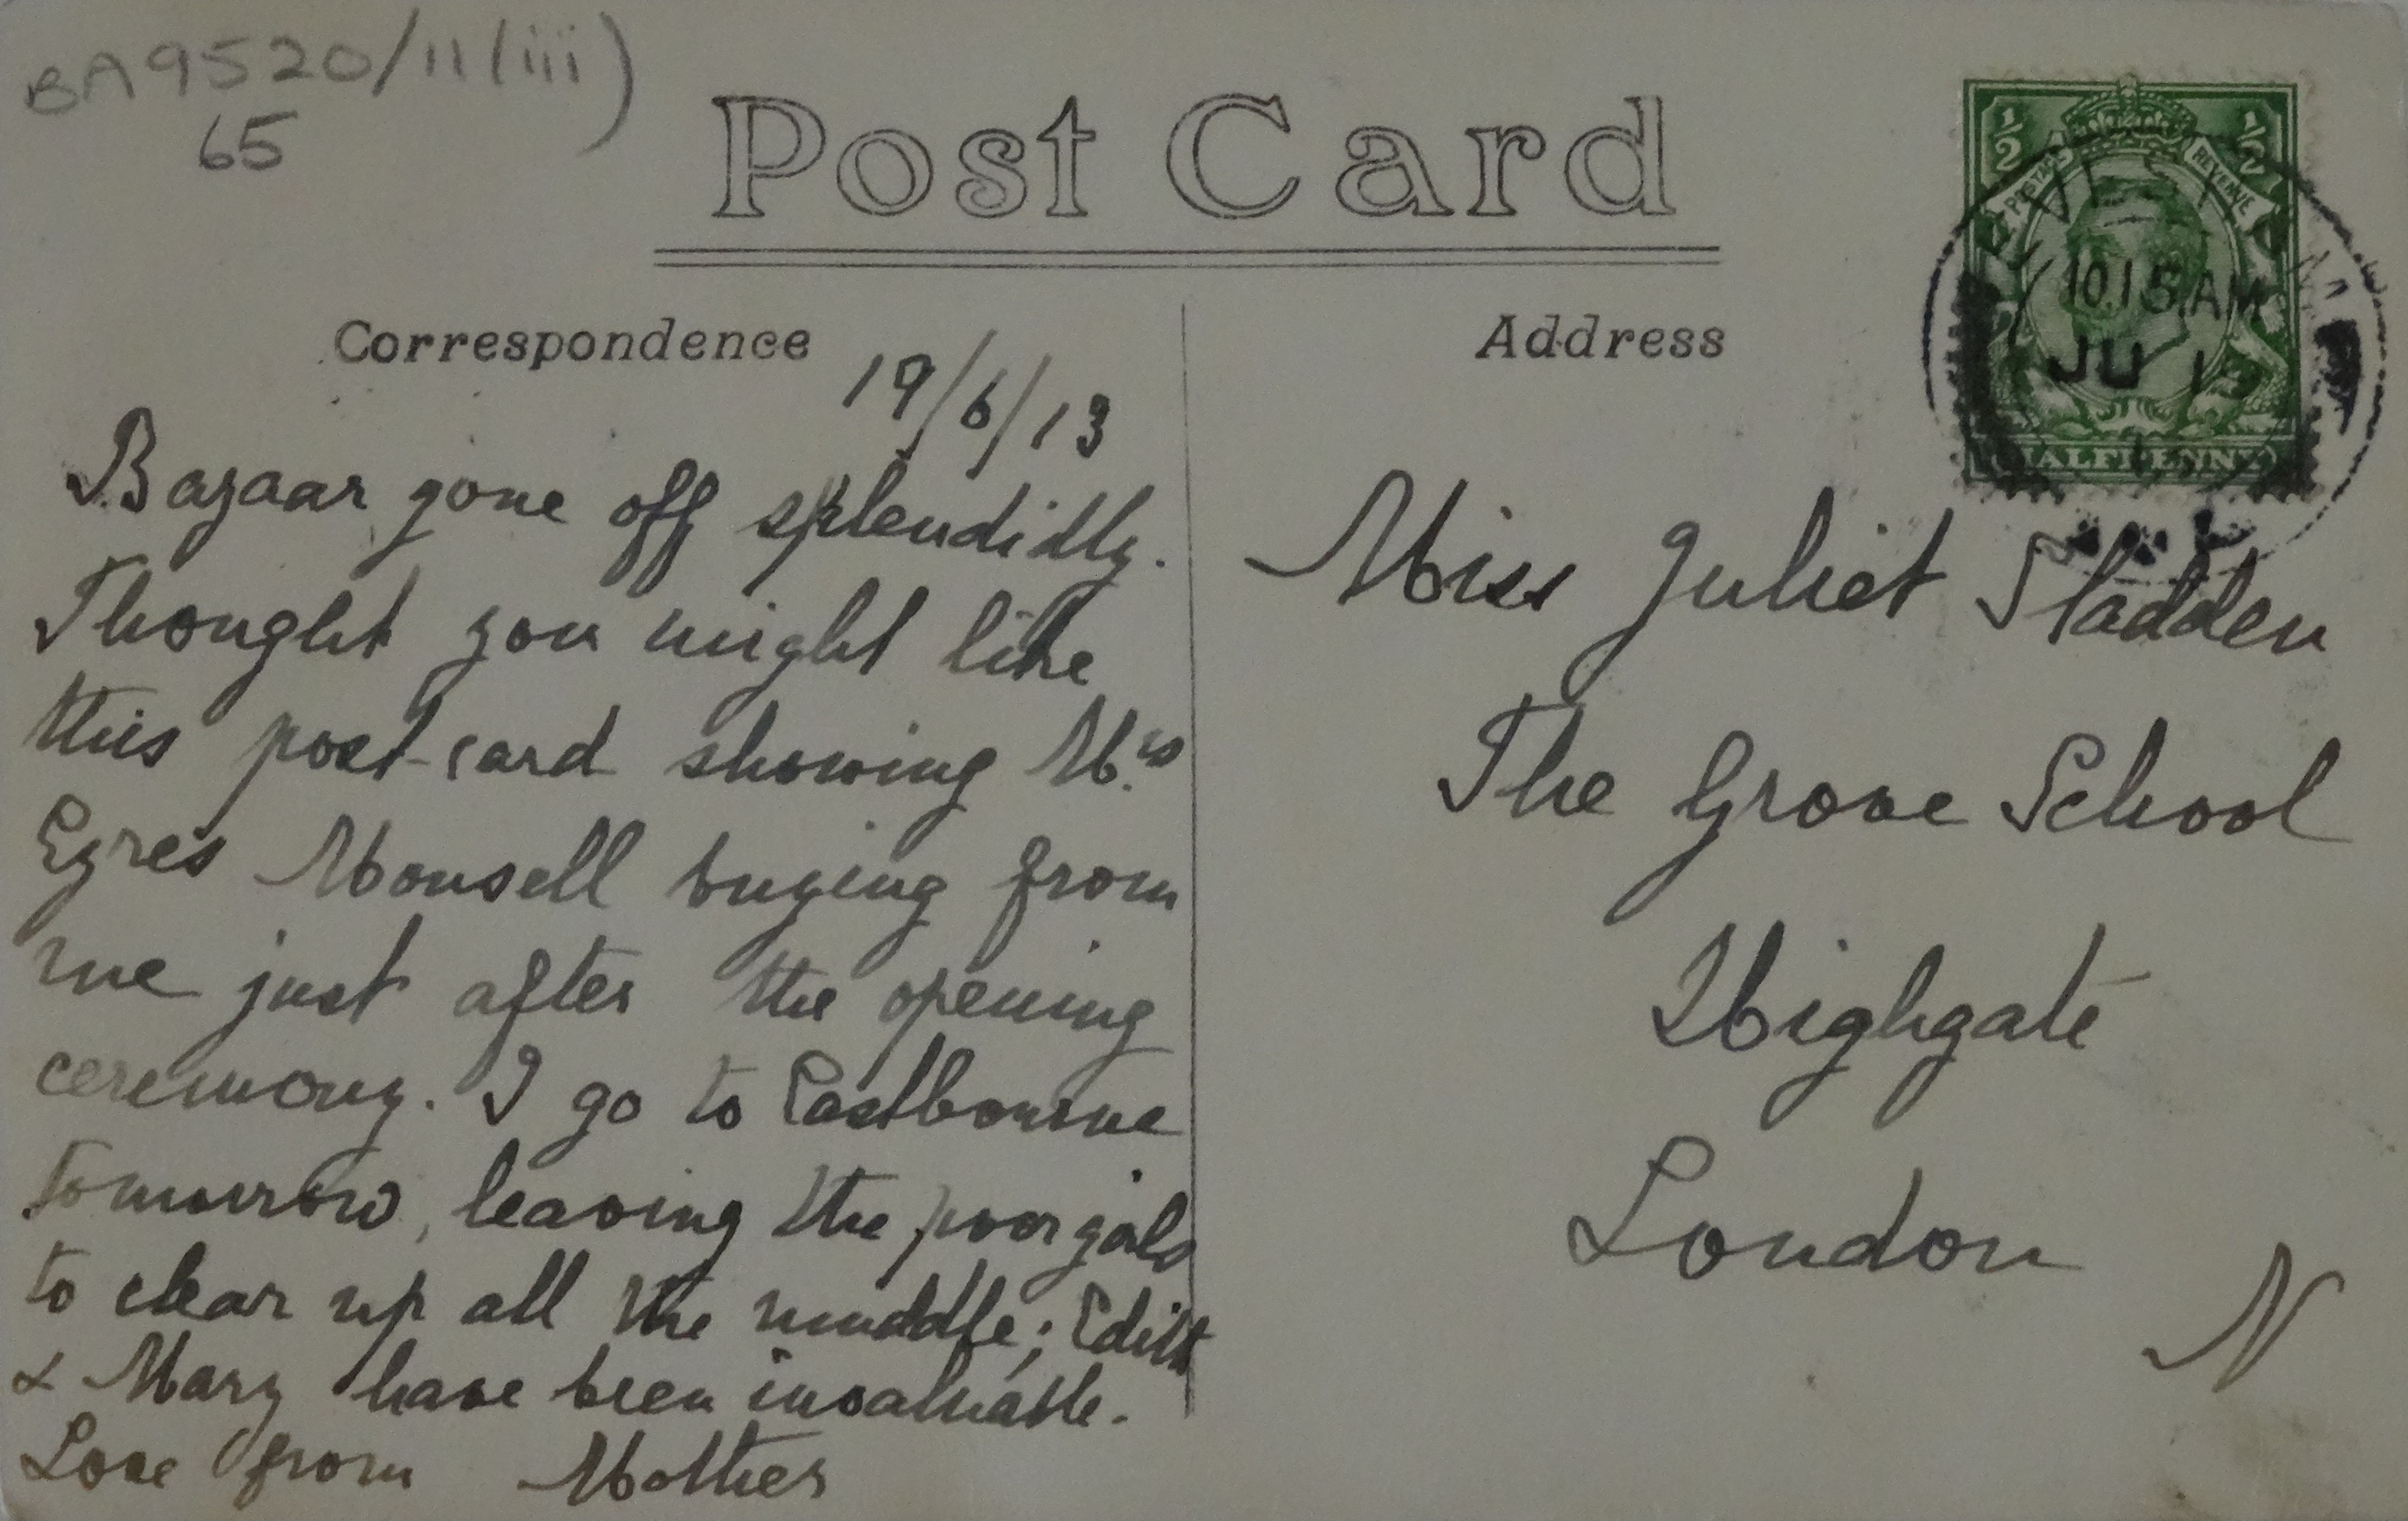 BA9520/11(iii)
65
Post Card
Correspondence
Address
19/6/13
Bazaar gone off splendidly.
Thought you might like
this post-card showing Mrs
Eyres Monsell buying from
me just after the opening
ceremony. I go to Eastbourne
tomorrow, leaving the poor girls
to clear up all the muddle; Edith
& Mary have been invaluable.
Love from Mother
Miss Juliet Sladden
The Grove School
Highgate
London
N
½ ½
POSTAGE REVENUE
HALFPENNY
10.15 AM
JU 19